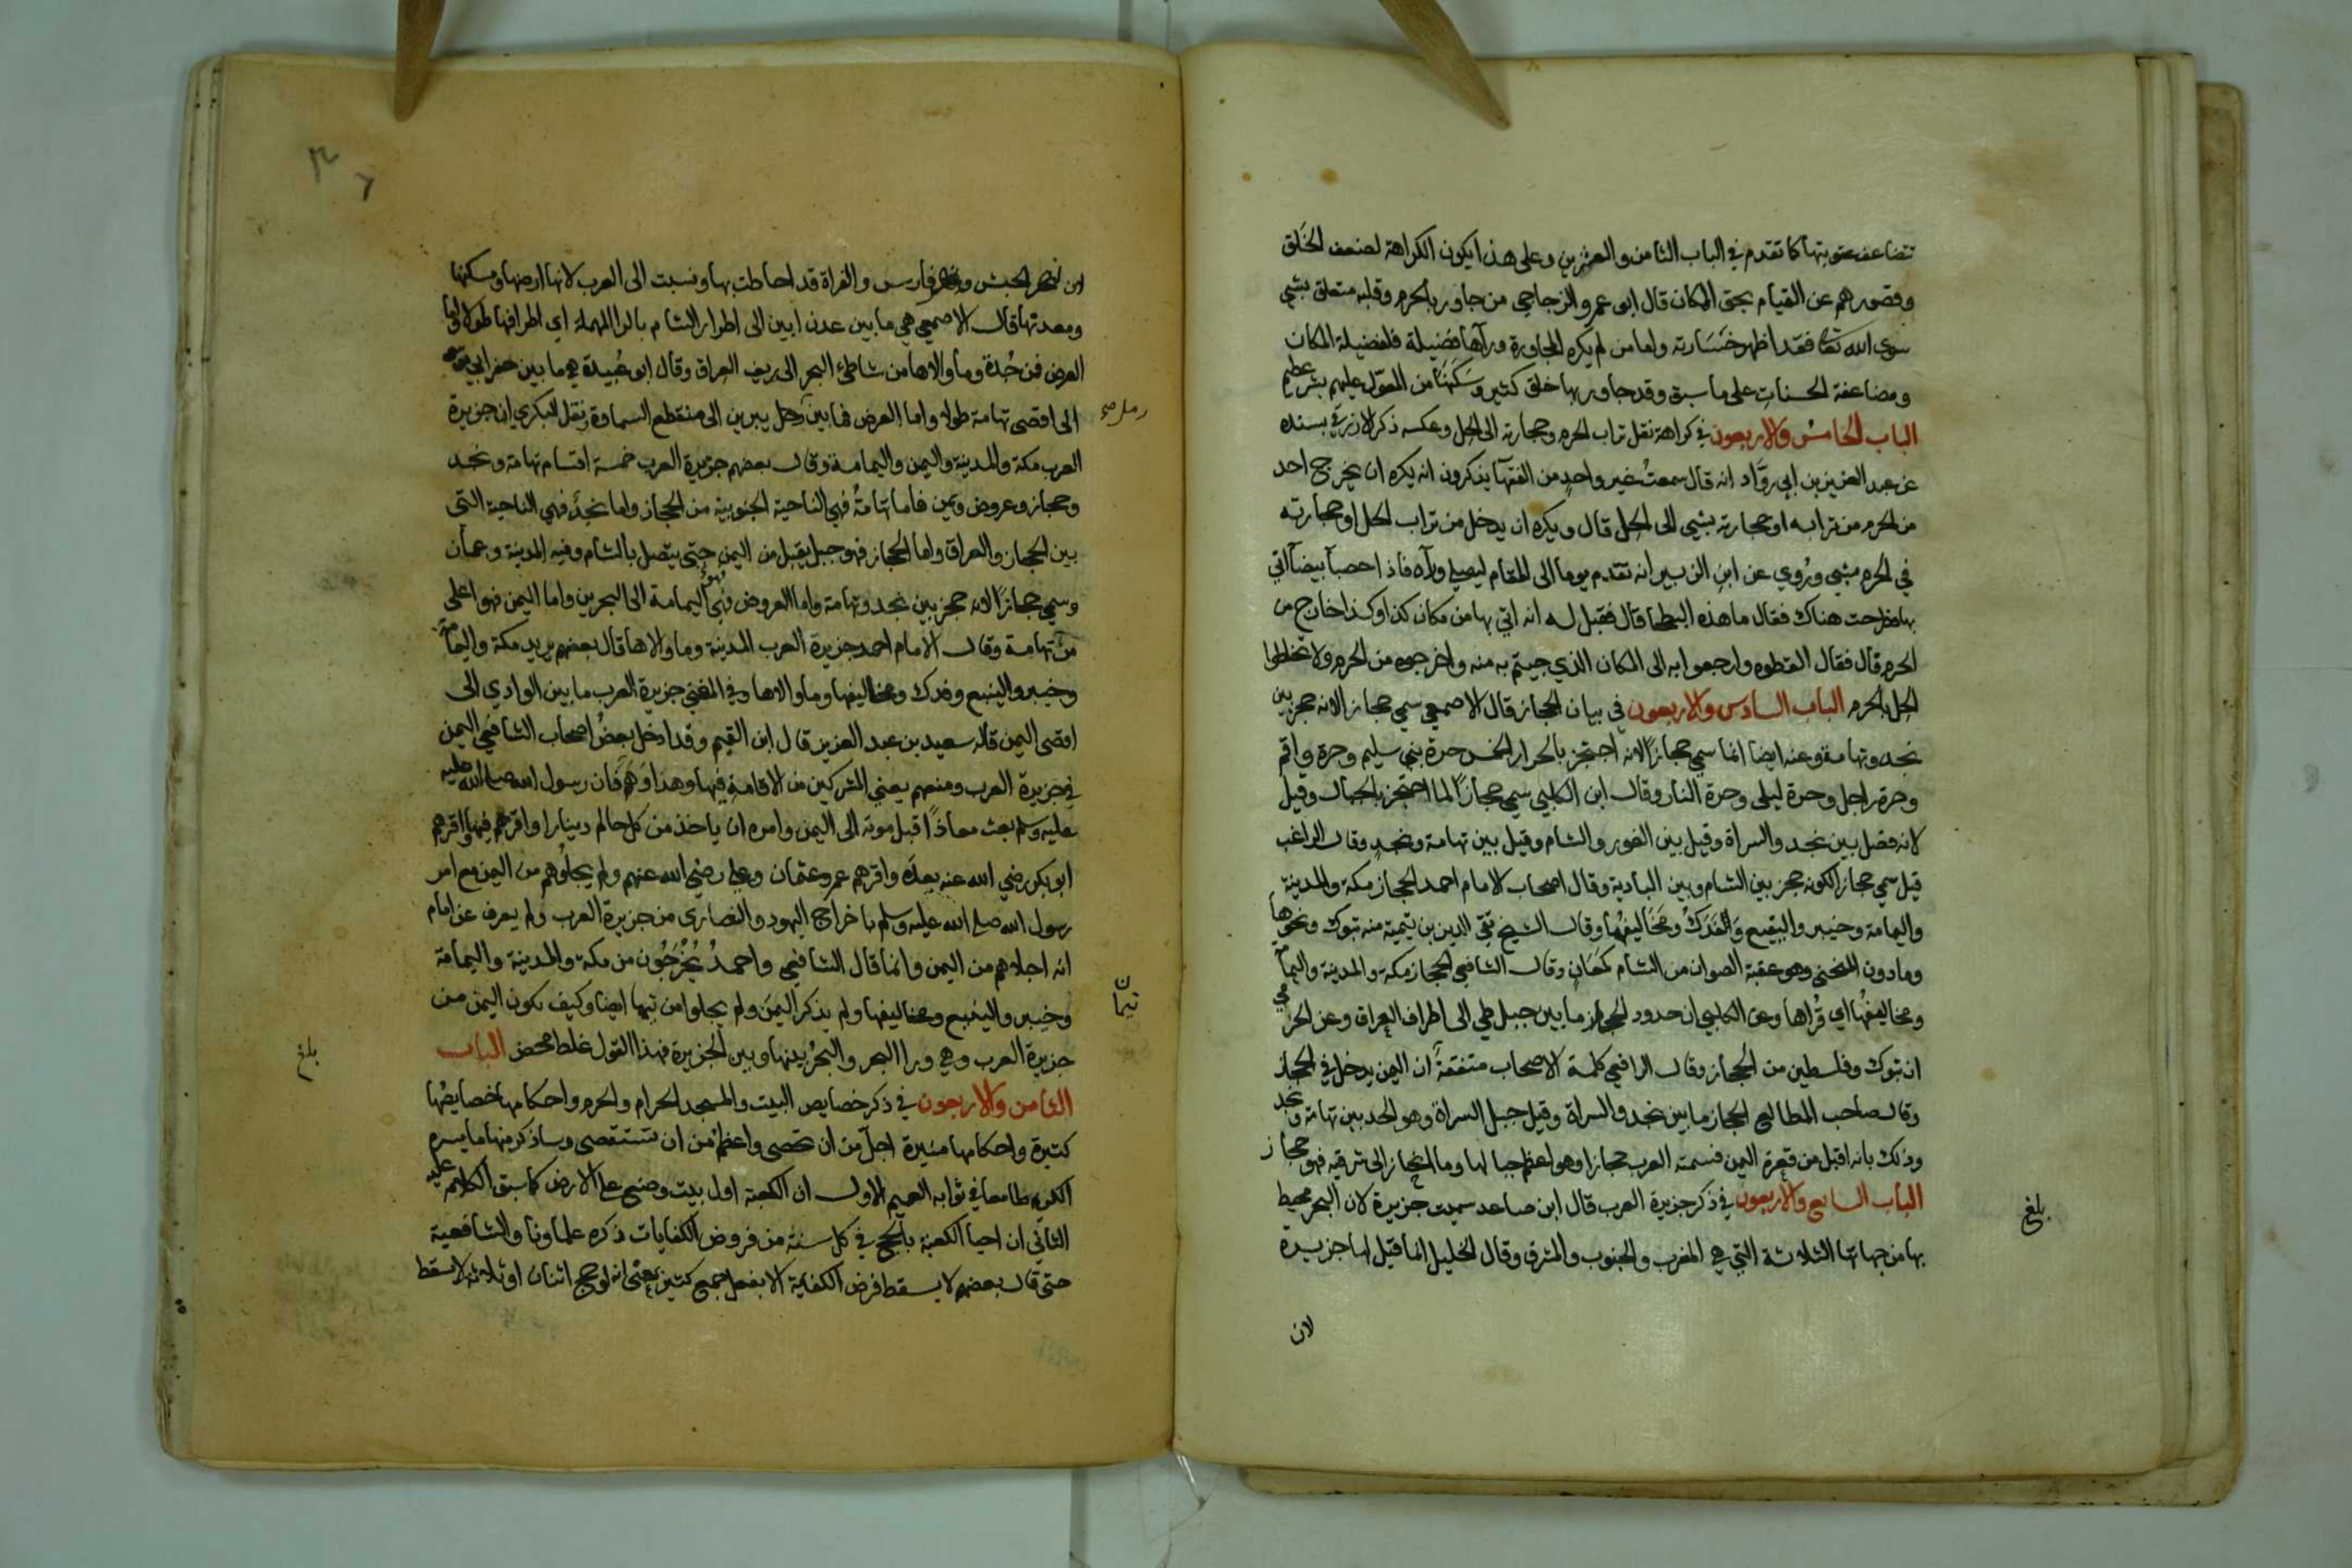 تتضاعف عقوبتها كما تقدم في الباب الثامن والعشرين وعلى هذا يكون الكراهة لضعف الخلق
وقصورهم عن القيام بحق المكان قال ابو عمرو الزجاجي من جاور بالحرم وقلبه متعلق بشي
سوى الله تعالى فقد اظهر خسارته واما من لم يكره المجاورة ورآها فضيلة فلفضيلة المكان
ومضاعفة الحسنات على ما سبق وقد جاور بها خلق كثير وسكنها من المعوّل عليهم بشر عظيم
الباب الخامس والاربعون في كراهة نقل تراب الحرم وحجارته الى الحل وعكسه ذكر الازرقي بسنده
عن عبد العزيز بن ابي روّاد انه قال سمعت غير واحد من الفقهآ يذكرون انه يكره ان يخرج احد
من الحرم من ترابه او حجارته بشي الى الحل قال ويكره ان يدخل من تراب الحل او حجارته
في الحرم بشي وروي عن ابن الزبير انه تقدم يوما الى المقام ليصلي ورآه فاذا حصبآ بيضآ اتي
بها فطرحت هناك فقال ما هذه البطحا قال فقيل له انه اتي بها من مكان كذا وكذا خارج من
الحرم قال فقال القطوه وارجعوا به الى المكان الذي جيتم به منه واخرجوه من الحرم ولا تخلطوا
الحل بالحرم الباب السادس والاربعون في بيان الحجاز قال الاصمعي سمي حجازا لانه حجز بين
نجد وتهامة وعنه ايضا انما سمي حجازاً لانه احتجز بالحرار الخمس حرة بني سليم وحرة واقم
وحرة راجل وحرة ليلى وحرة النار وقال ابن الكلبي سمي حجازاً لما احتجز بالجبال وقيل
لانه فصل بين نجد والسراة وقيل بين الغور والشام وقيل بين تهامة ونجد وقال الراغب
قيل سمي حجازا لكونه حجز بين الشام وبين البادية وقال اصحاب الامام احمد الحجاز مكة والمدينة
واليمامة وخيبر والينبع والفدك ومخاليفها وقال الشيخ تقي الدين بن تيمية منه تبوك ونحوها
وما دون المنحنى وهو عقبة الصوان من الشام كمعان وقال الشافعي الحجاز مكة والمدينة واليمامة
ومخاليفها اي قراها وعن الكلبي ان حدود الحجاز ما بين جبل طي الى اطراف العراق وعن الحربي
ان تبوك وفلسطين من الحجاز وقال الرافعي كلمة الاصحاب متفقة ان اليمن يدخل في الحجاز
وقال صاحب المطالع الحجاز ما بين نجد والسراة وقيل جبل السراة وهو الحد بين تهامة ونجد
وذلك بانه اقبل من قعرة اليمن فسمته العرب حجازا وهو اعظم جبالها وما انحاز الى شرقيه فهو حجاز
الباب السابع والاربعون في ذكر جزيرة العرب قال ابن صاعد سميت جزيرة لان البحر محيط
بها من جهاتها الثلاثة التي هي المغرب والجنوب والمشرق وقال الخليل انما قيل لها جزيرة
لان
بلغ
لان بحر الحبش وبحر فارس والفراة قد احاطت بها ونسبت الى العرب لانها ارضها ومسكنها
ومعدنها قال الاصمعي هي ما بين عدن ابين الى اطرار الشام بالراء المهملة اي اطرافها طولا واما
العرض فمن جُدة وما والاها من شاطئ البحر الى ريف العراق وقال ابو عبيدة هي ما بين حفر ابي موسى
الى اقصى تهامة طولا واما العرض فما بين رمل يبرين الى منقطع السماوة ونقل البكري ان جزيرة
العرب مكة والمدينة واليمن واليمامة وقال بعضهم جزيرة العرب خمسة اقسام تهامة ونجد
وحجاز وعروض ويمن فاما تهامة فهي الناحية الجنوبية من الحجاز واما نجد فهي الناحية التي
بين الحجاز والعراق واما الحجاز فهو جبل يقبل من اليمن حتى يتصل بالشام وفيه المدينة وعمان
وسمي حجازا لانه حجز بين نجد وتهامة واما العروض فهي اليمامة الى البحرين واما اليمن فهو اعلى
من تهامة وقال الامام احمد جزيرة العرب المدينة وما والاها قال بعضهم يريد مكة واليمامة
وخيبر والينبع وفدك ومخاليفها وما والاها وفي المغني جزيرة العرب ما بين الوادي الى
اقصى اليمن قاله سعيد بن عبد العزيز قال ابن القيم وقد ادخل بعض اصحاب الشافعي اليمن
في جزيرة العرب ومنعهم يعني المشركين من الاقامة فيها وهذا وهم فان رسول الله صلى الله عليه
عليه وسلم بعث معاذاً قبل موته الى اليمن وامره ان ياخذ من كل حالم دينارا واقرهم فيها واقرهم
ابو بكر رضي الله عنه بعده واقرهم عمر وعثمان وعلي رضي الله عنهم ولم يجلوهم من اليمن مع امر
رسول الله صلى الله عليه وسلم باخراج اليهود والنصارى من جزيرة العرب ولم يعرف عن امام
انه اجلاهم من اليمن وانما قال الشافعي واحمد يُخرَجُون من مكة والمدينة واليمامة
وخيبر والينبع ومخاليفها ولم يذكر اليمن ولم يجلوا من تيما ايضا وكيف يكون اليمن من
جزيرة العرب وهي ورا البحر والبحر بينها وبين الجزيرة فهذا القول غلط محض الباب
الثامن والاربعون في ذكر خصايص البيت والمسجد الحرام والحرم واحكامها خصايصها
كثيرة واحكامها منيرة اجل من ان تحصى واعظم من ان تستقصى وساذكر منها ما يسره
الكريم طامعا في ثوابه العميم الاول ان الكعبة اول بيت وضع على الارض كما سبق الكلام عليه
الثاني ان احيا الكعبة بالحج في كل سنة من فروض الكفايات ذكره علماونا والشافعية
حتى قال بعضهم لا يسقط فرض الكفاية الا بفعل جمع كثير يعني انه لو حج اثنان او ثلاثة لا يسقط
رمل صح
تيمآ
بلغ